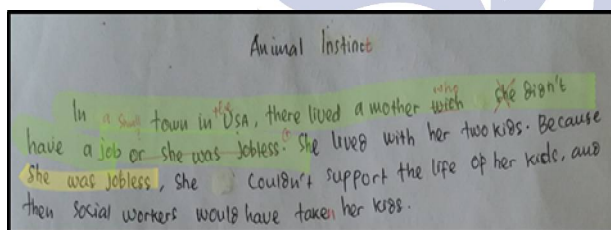 Animal Instinct
In a small town in the USA, there lived a mother wich who she didn't
have a job or she was jobless. She lived with her two kids. Because
She was jobless, she couldn't support the life of her kids, and
then social workers would have taken her kids.